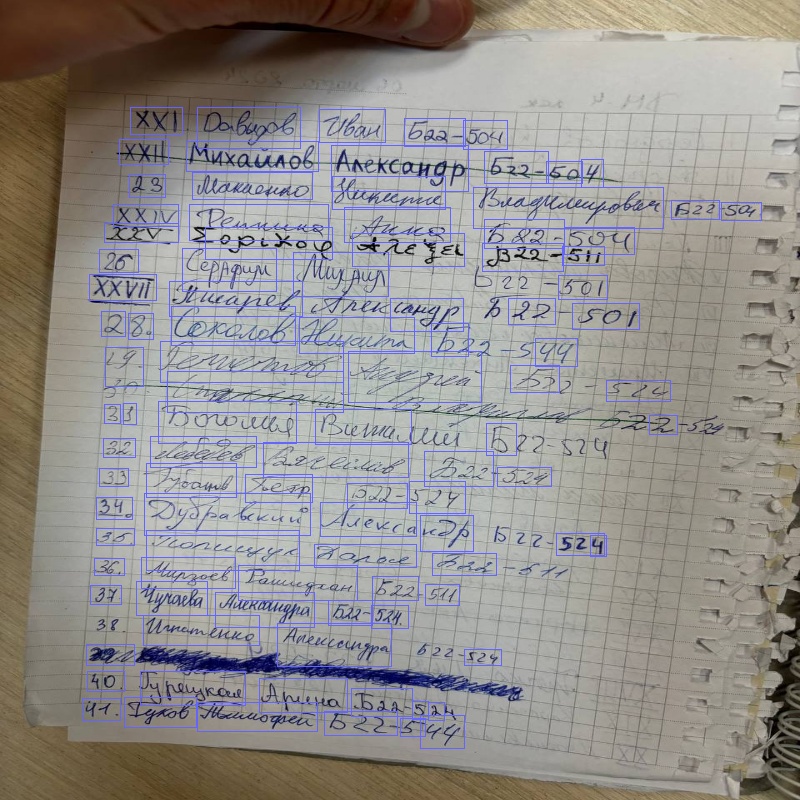 XXI Давыдов Иван Б22-504
XXII Михайлов Александр Б22-504
23 Макаенко Никита Владимирович Б22-504
XXIV Репкина Анна Б22-504
XXV Зорихов Алексей Б22-511
26 Серафим Михаил Б22-501
XXVII Писарев Александр Б22-501
28. Соколов Никита Б22-544
19. Андрей Б22-524
30. Б22-524
31 Боголия Виталий Б22-524
32 Лебедев Вячеслав Б22-524
33 Губанов Петр Б22-524
34. Дубравский Александр Б22-524
35 Полищук Дарья Б22-511
36. Мирзоев Рашидхан Б22-511
37 Чучаева Александра Б22-524.
38. Игнатенко Александра Б22-524
40. Гурецкая Арина Б22-524
41. Гуков Тимофей Б22-544